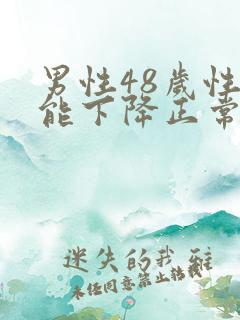 男性48歲性
能下降正常
迷失的我_雖
未经同意禁止转载